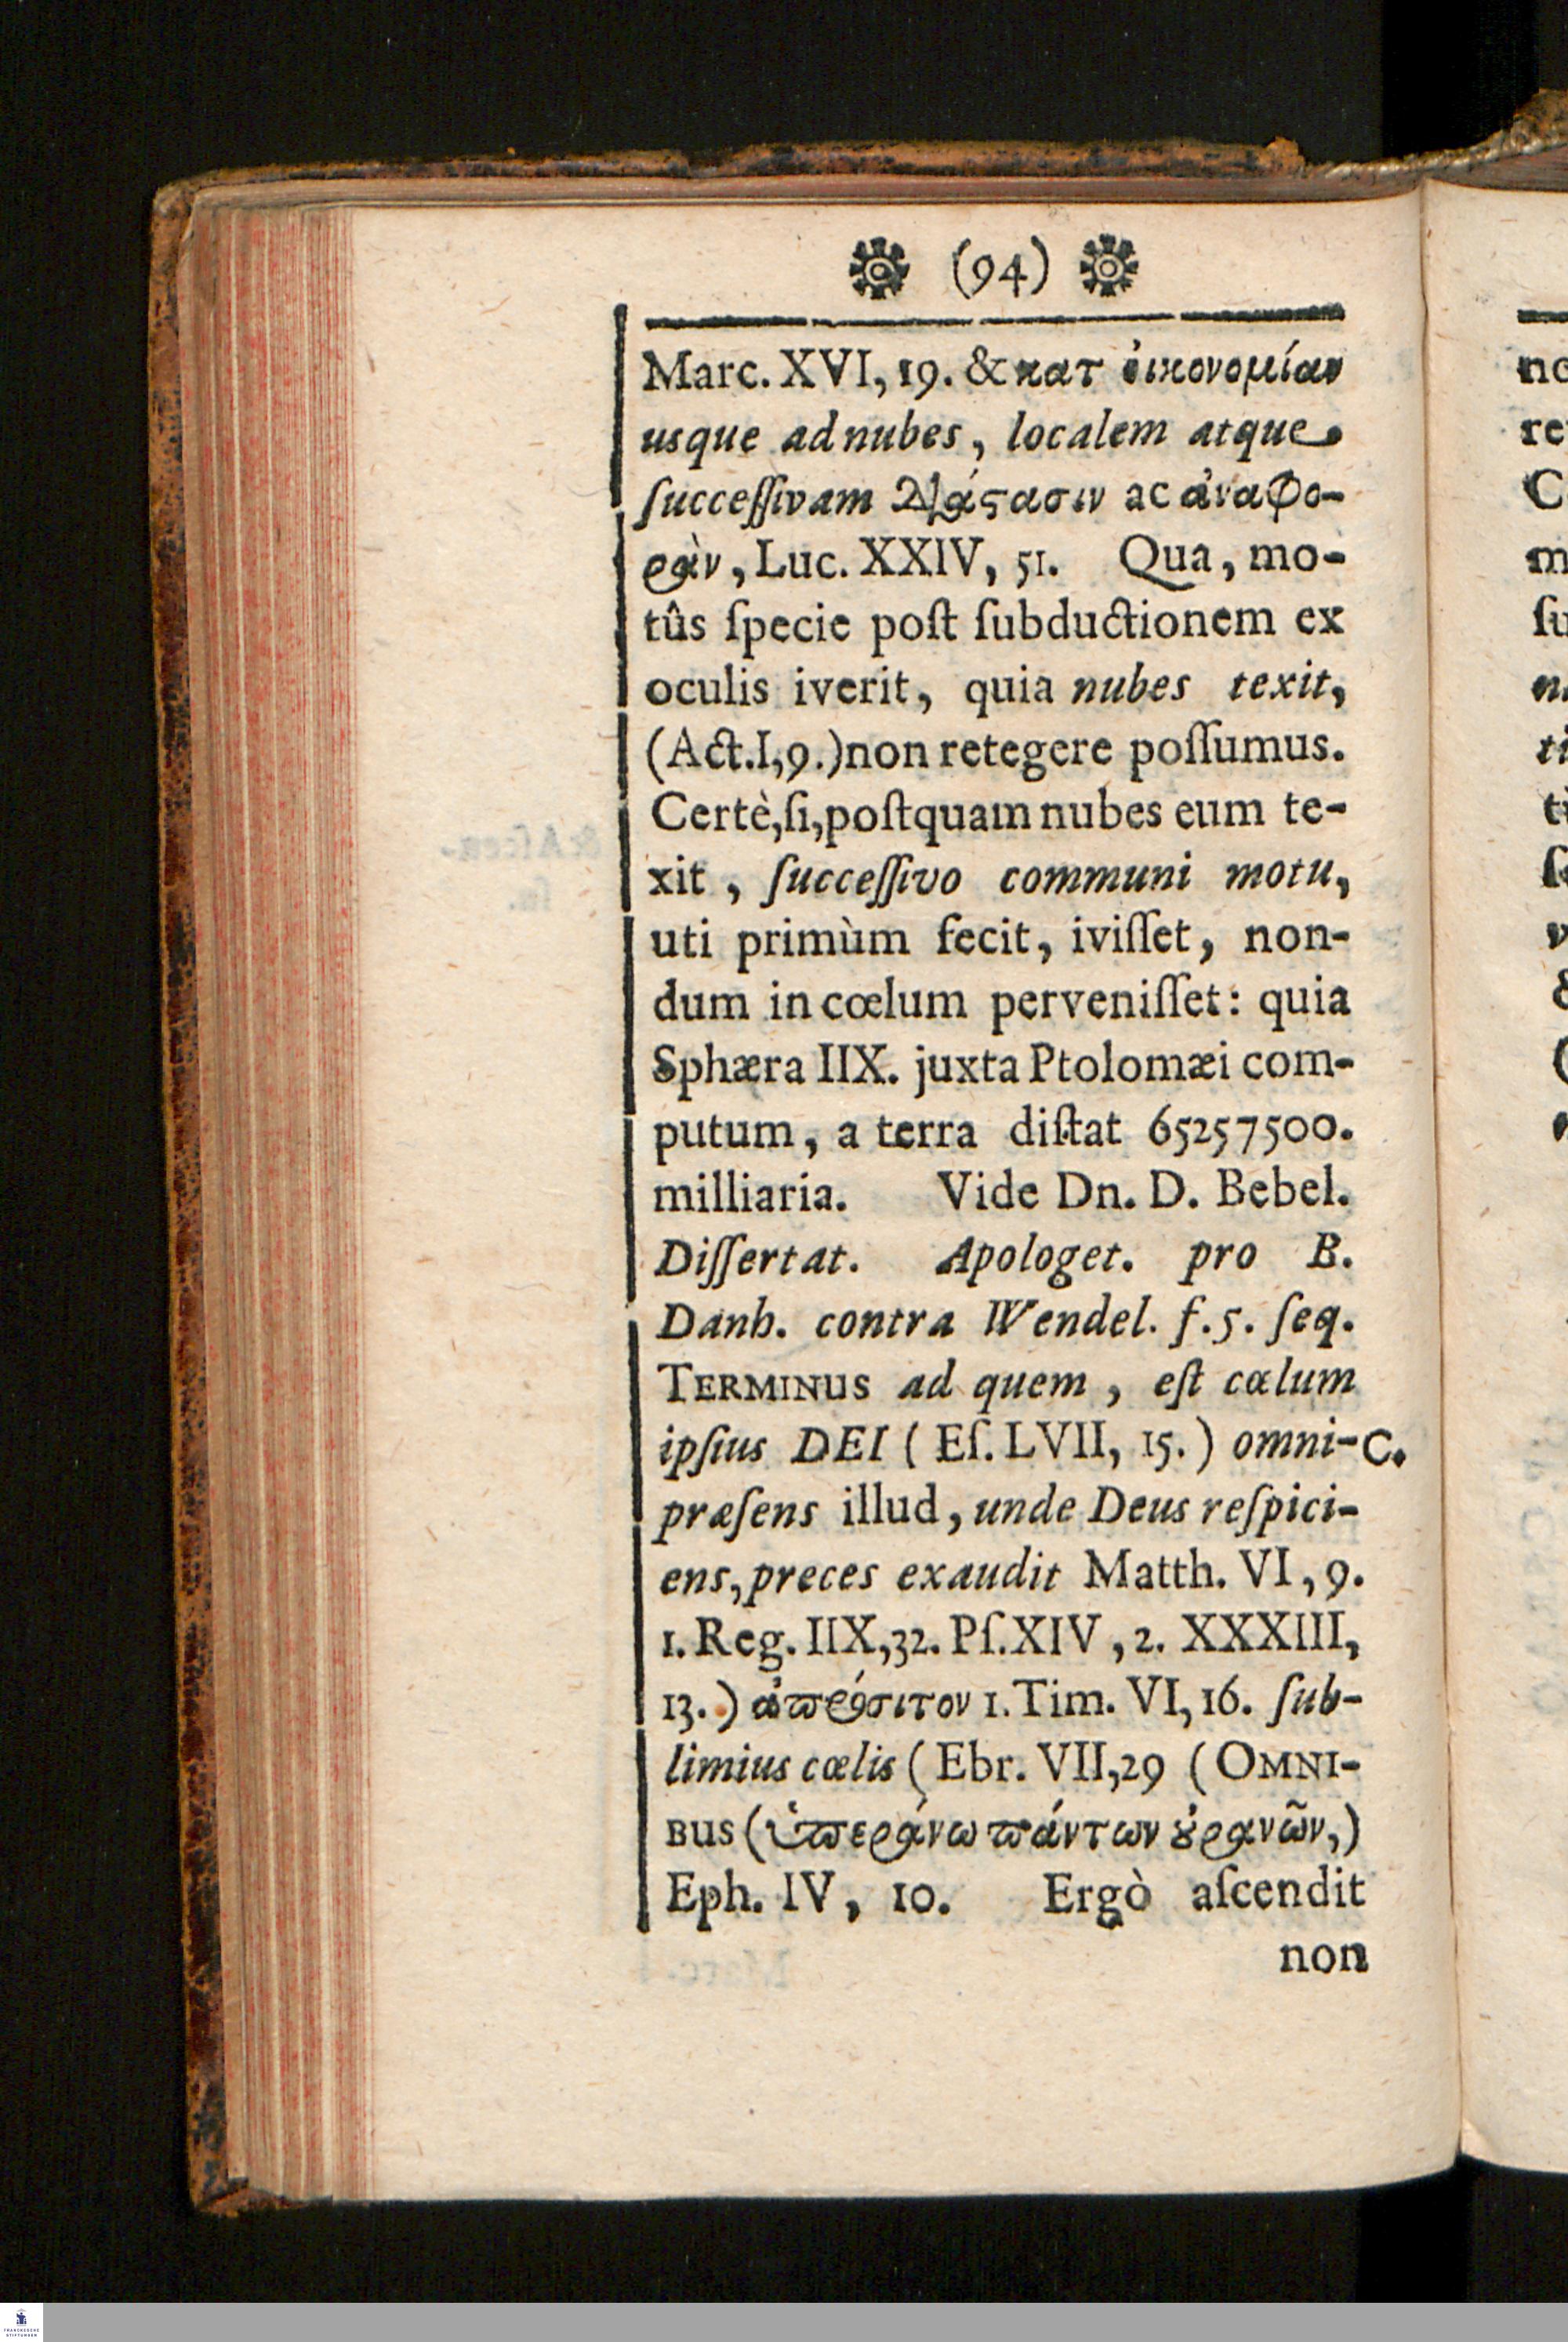 (94)
Marc. XVI, 19. & κατ ὀικονομίαν
usque ad nubes, localem atque
ſucceſſivam διάςασιν ac ἀναφο-
ρὰν, Luc. XXIV, 51. Qua, mo-
tûs ſpecie poſt ſubductionem ex
oculis iverit, quia nubes texit,
(Act.I,9.) non retegere poſſumus.
Certè, ſi, poſtquam nubes eum te-
xit, ſucceſſivo communi motu,
uti primùm fecit, iviſſet, non-
dum in cœlum perveniſſet: quia
Sphæra IIX. juxta Ptolomæi com-
putum, a terra diſtat 65257500.
milliaria. Vide Dn. D. Bebel.
Diſſertat. Apologet. pro B.
Danh. contra Wendel. f. 5. ſeq.
TERMINUS ad quem, eſt cœlum
ipſius DEI (Eſ. LVII, 15.) omni- C.
præſens illud, unde Deus reſpici-
ens, preces exaudit Matth. VI, 9.
1. Reg. IIX, 32. Pſ. XIV, 2. XXXIII,
13.) ἀπρόσιτον 1. Tim. VI, 16. ſub-
limius cœlis (Ebr. VII, 29 (OMNI-
BUS (ὑπεράνω πάντων ȣ̓ρανῶν,)
Eph. IV, 10. Ergò aſcendit
non